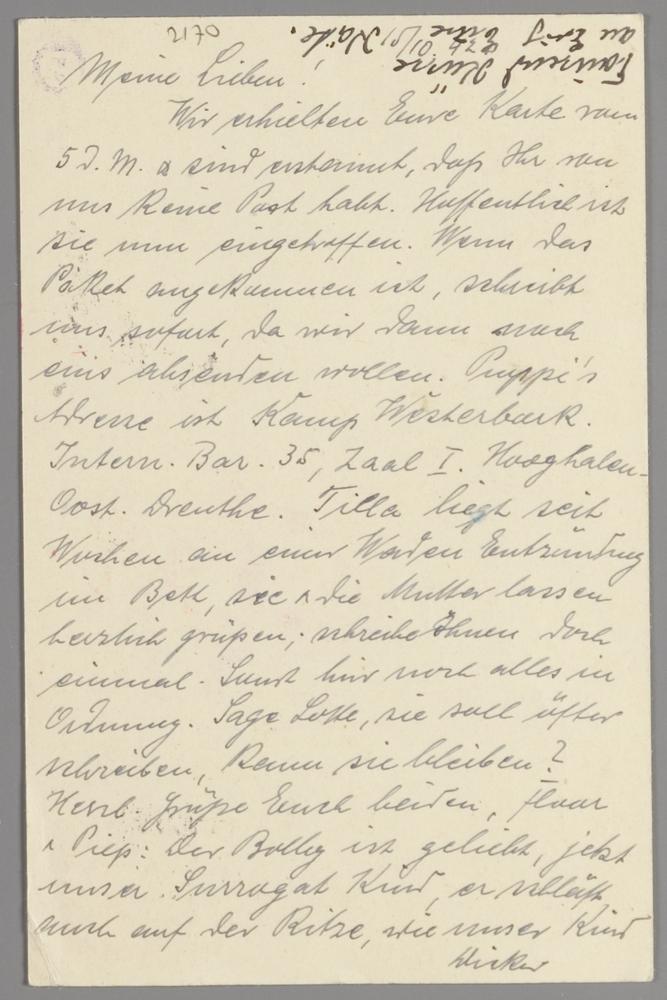 2170
Tausend Küsse
au Erig Eure
Käte.
Meine Lieben!
Wir erhielten Eure Karte vom
5 d. M. & sind erstaunt, daß Ihr von
uns keine Post habt. Hoffentlich ist
sie nun eingetroffen. Wenn das
Paket angekommen ist, schreibt
uns sofort, da wir dann noch
eins absenden wollen. Puppi's
Adresse ist Kamp Westerbork.
Intern. Bar. 35, Zaal I. Hooghalen-
Oost. Drenthe. Tilla liegt seit
Wochen an einer Waden Entzündung
im Bett, sie & die Mutter lassen
herzlich grüßen; schreibe Ihnen doch
einmal. Sonst hier noch alles in
Ordnung. Sage Lotte, sie soll öfter
schreiben, kann sie bleiben?
Herzl. Grüße Euch beiden, Floor
& Piep: Der Bolly ist geliebt, jetzt
unser Surrogat Kind, er schläft
auch auf der Ritze, wie unser Kind